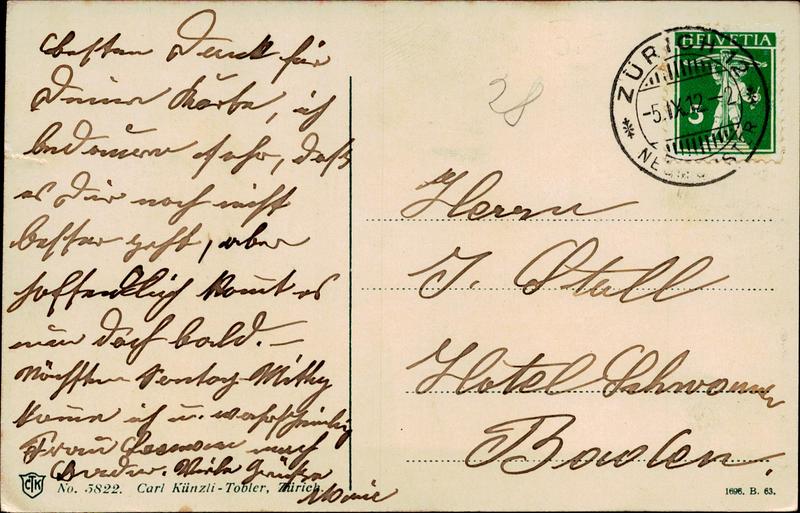 besten Dank für
Deine Karte, ich
bedauere sehr, daß
es Dir noch nicht
besser geht, aber
hoffentlich kommt es
nun doch bald. –
Nächsten Sontag Mittag
kome ich u. wahrscheinlich
Frau nach
Baden. Viele Grüsse
Marie
No. 5822. Carl Künzli-Tobler, Zürich.
28
HELVETIA
5
ZÜRICH 12
-5.IX.12.-2
NEUMÜNSTER
Herrn
J. Stall
Hotel Schwanen
Baden.
1696. B. 63.